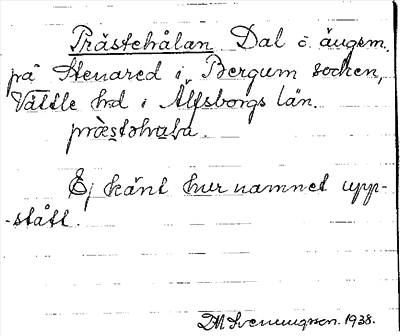 Prästehålan Dal o. ängem.
på Stenared i Bergum socken,
Vättle hd i Älfsborgs län.
Ej känt hur namnet upp-
-stått.
DM Svenningson. 1938.